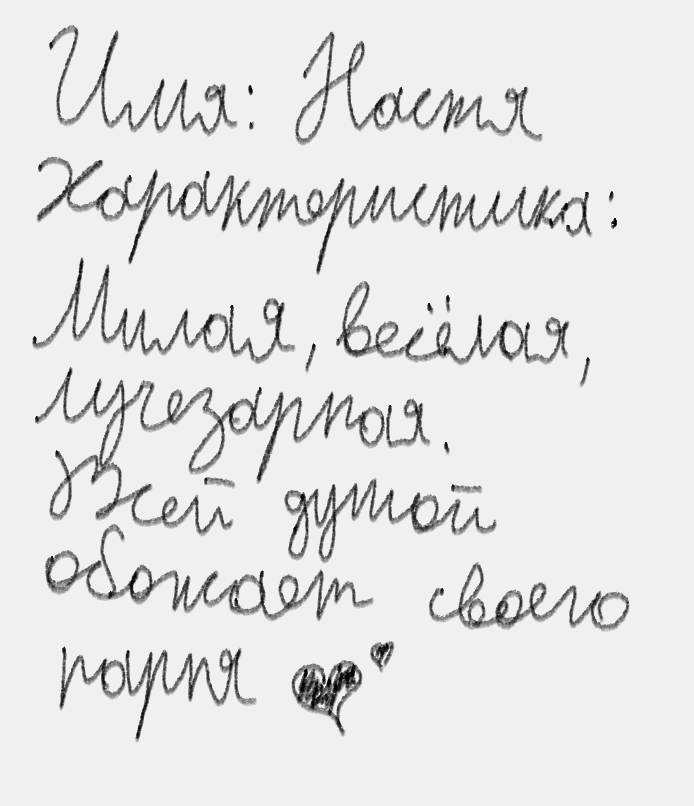 Имя: Настя
Характеристика:
Милая, весёлая,
лучезарная.
Всей душой
обожает своего
парня